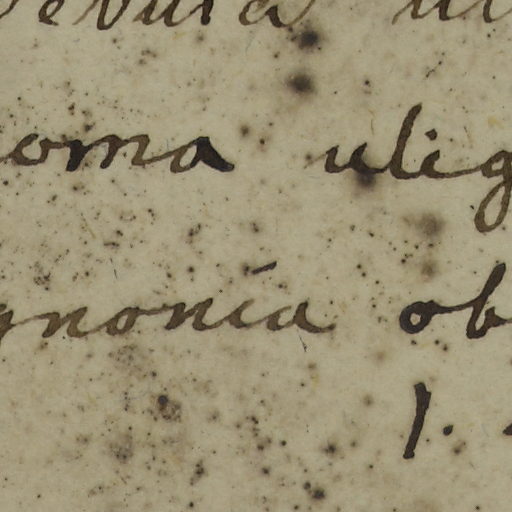 oma ulig
gnonia ob
1.